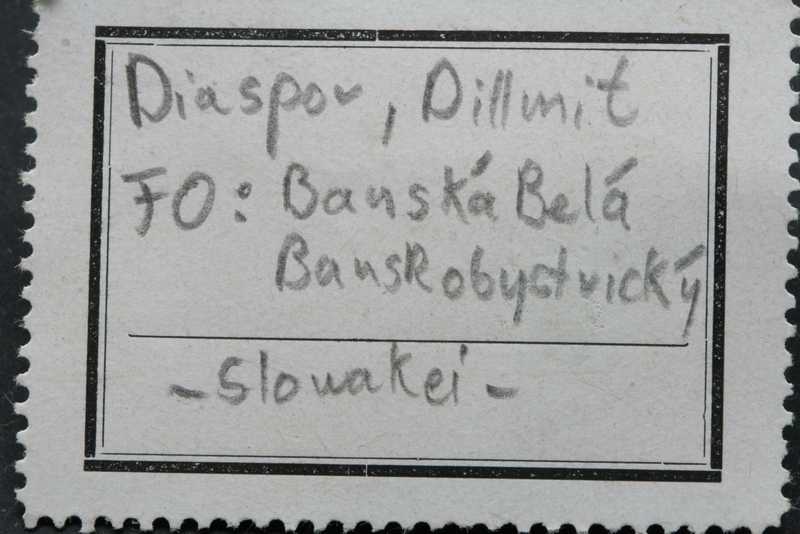 Diaspor, Dillnit
FO: Banská Belá
Banskobystrický
- Slowakei -